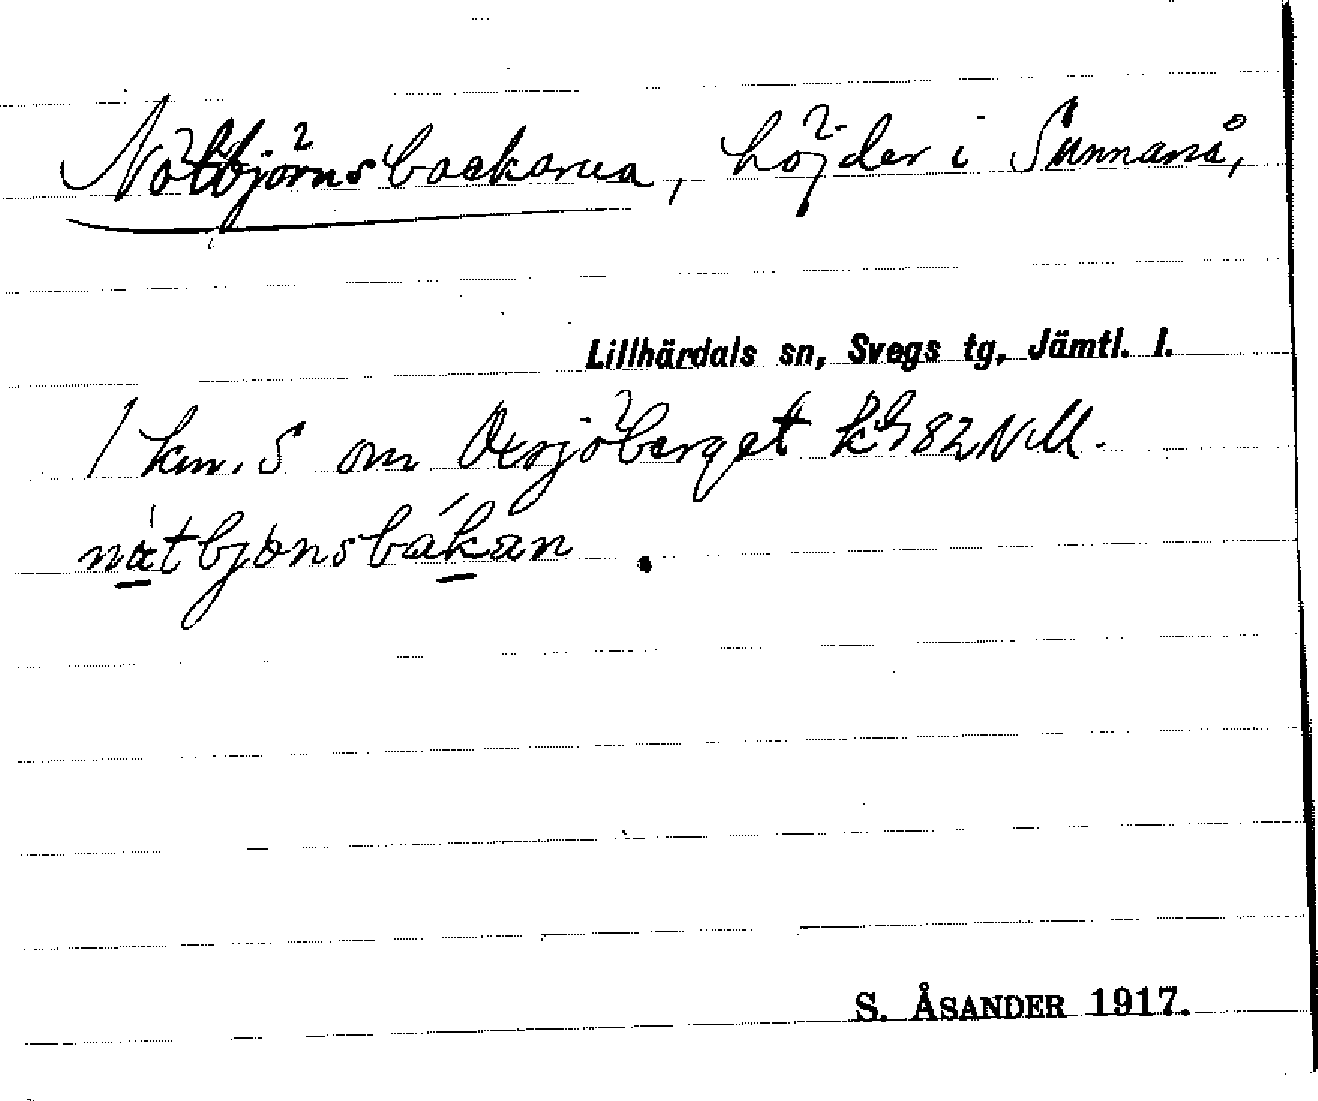 Nötbjörnsbackarna, höjder i Sunnanå,
Lillhärdals sn, Svegs tg, Jämtl. l.
1 km. S om Oxsjöberget kbl 82 N.M.
nätbjönsbákan.
S. ÅSANDER 1917.